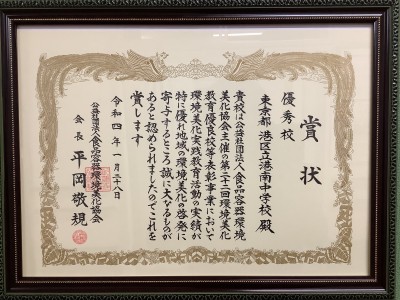 賞状
優秀校
東京都 港区立港南中学校 殿
貴校は公益社団法人食品容器環境
美化協会主催の第二十二回環境美化
教育優良校等表彰事業において
環境美化実践教育活動の実績が
特に優れ地域の環境美化の啓発に
寄与するところ誠に大なるものが
あると認められましたのでこれを
賞します
令和四年一月二十八日
公益社団法人食品容器環境美化協会
会長 平岡敬規